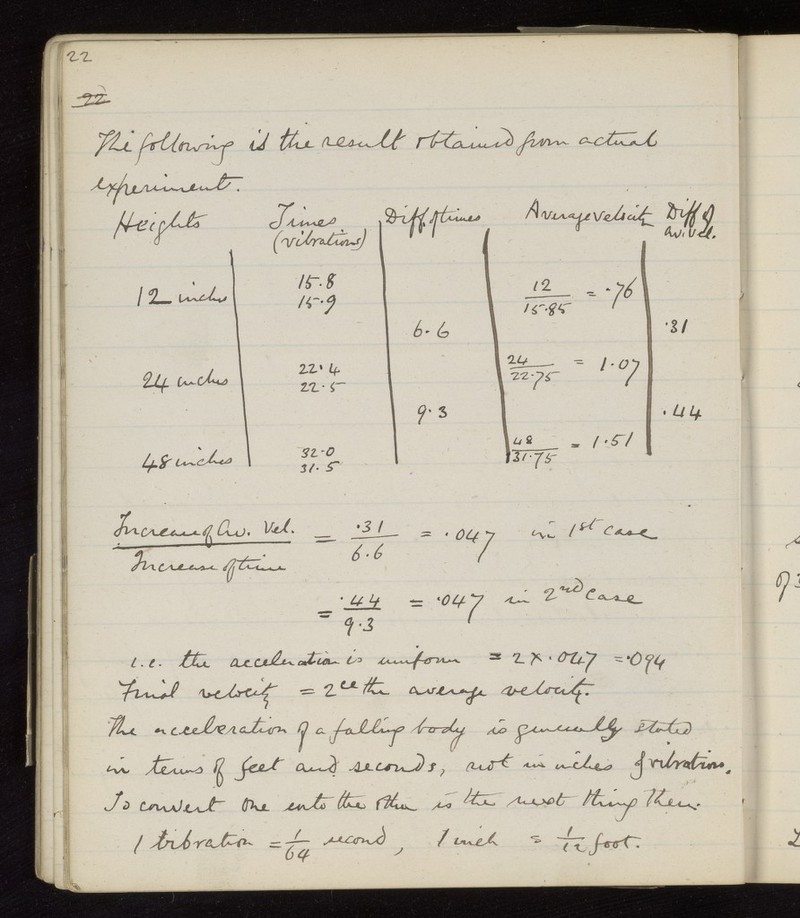 22
22
The following is the result obtained from actual
experiment.
Heights Times Diff of times Average velocity Diff of
(vibrations) av. vel.
12 inches 15.8 12/15.85 = .76
15.9
6.6 .31
24 inches 22.4 24/22.75 = 1.07
22.5
9.3 .44
48 inches 32.0 48/31.75 = 1.51
31.5
Increase of Av. Vel. / Increase of time = .31/6.6 = .047 in 1st case
= .44/9.3 = .047 in 2nd case
i.e. the acceleration is uniform = 2 x .047 = .094
Final velocity = 2ce the average velocity.
The acceleration of a falling body is generally stated
in terms of feet and seconds, not in inches & vibrations.
To convert one into the other is the next thing then.
1 vibration = 1/64 second, 1 inch = 1/12 foot.
of 3